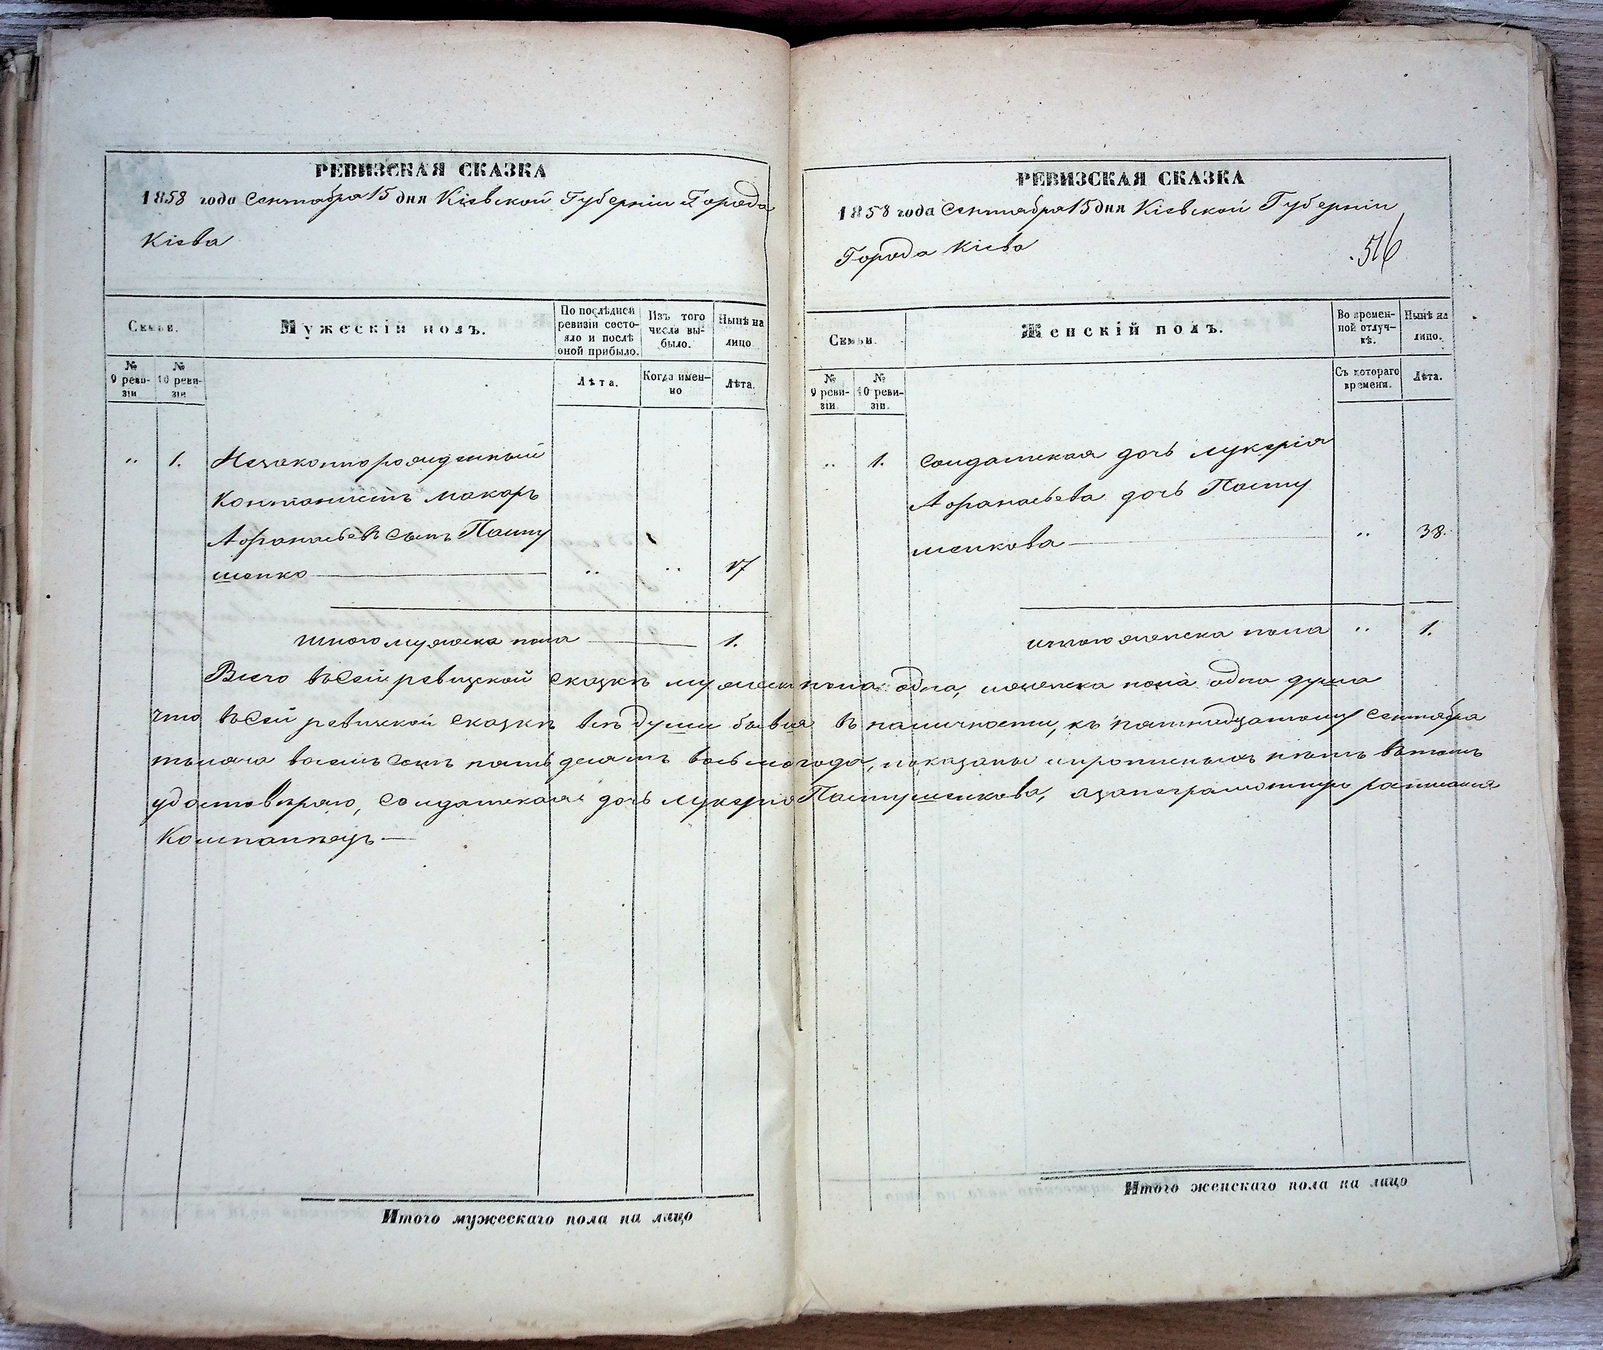 РЕВИЗСКАЯ СКАЗКА
1858 года Сентября 15 дня Кіевской Губерніи Города
Кіева
Семьи.
Мужескій полъ.
По послѣдней ревизіи состояло и послѣ оной прибыло.
Изъ того числа выбыло.
Нынѣ на лицо
№ 9 ревизіи
№ 10 ревизіи
Лѣта.
Когда именно
Лѣта.
" 1. Незаконнорожденный
Кантонистъ Макаръ
Афанасьевъ сынъ Пасту
шенко " " 17
Итого мужеска пола 1.
РЕВИЗСКАЯ СКАЗКА
1858 года Сентября 15 дня Кіевской Губерніи
Города Кіева
516
Семьи.
Женскій полъ.
Во временной отлучкѣ.
Нынѣ на лицо.
№ 9 ревизіи.
№ 10 ревизіи.
Съ котораго времени.
Лѣта.
" 1. Солдатская дочь Лукерія
Афанасьева дочь Пасту
шенкова " 38.
Итого женска пола " 1.
Всего въ сей ревизской сказкѣ мужеска пола одна, женска пола одна душа
что въ сей ревизской сказкѣ всѣ души бывшія въ наличности, къ пятнадцатому Сентября
тысяча восемь сотъ пятьдесятъ восьмого года, показаны и прописныхъ нѣтъ въ томъ
удостовѣряю, Солдатская дочь Лукерія Пастушенкова, а за неграмотную росписался
Компанѣецъ
Итого мужескаго пола на лицо
Итого женскаго пола на лицо